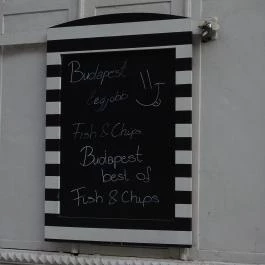 Budapest
legjobb
Fish & Chips
Budapest
best of
Fish & Chips